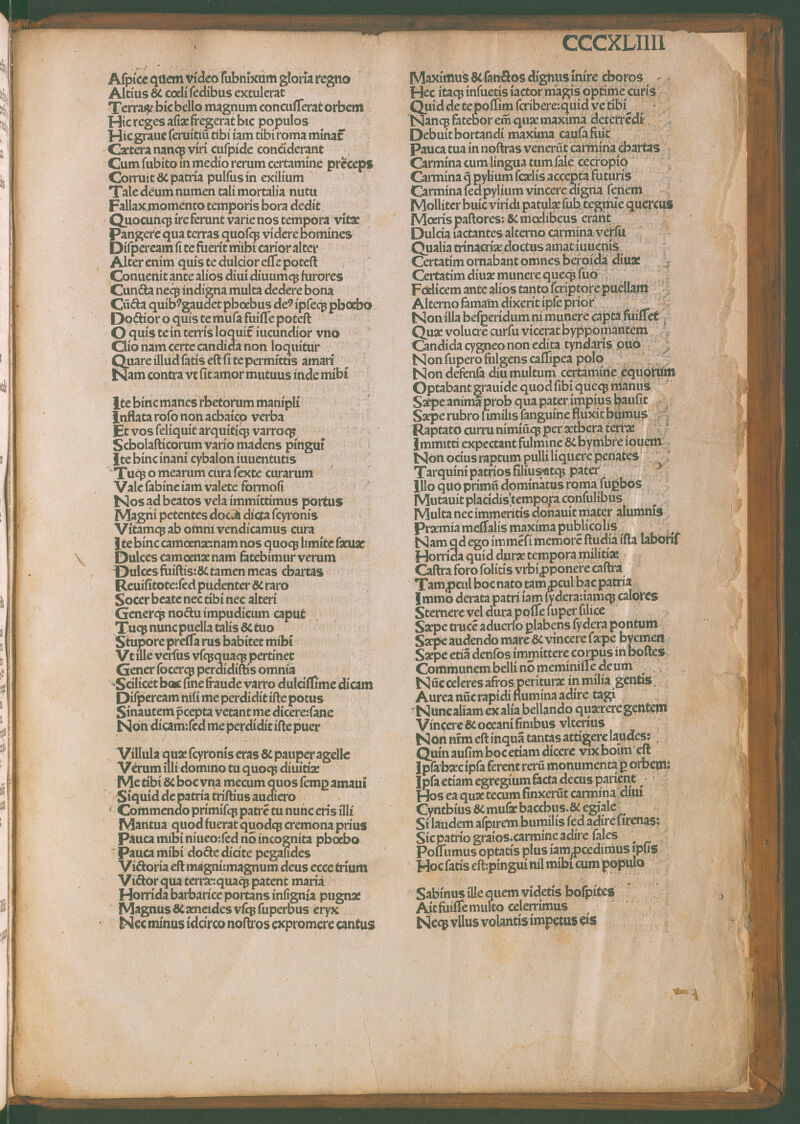 CCCXLIIII
Aſpice quem video ſubnixum gloria regno
Altius & cœli ſedibus extulerat
Terraꝝ hic bello magnum concuſſerat orbem
Hic reges aſiæ fregerat hic populos
Hic graue ſeruitiū tibi iam tibi roma minat̄
Cætera nanqꝫ viri cuſpide conciderant
Cum ſubito in medio rerum certamine prēceps
Corruit & patria pulſus in exilium
Tale deum numen tali mortalia nutu
Fallax momento temporis hora dedit
Quocunqꝫ ire ferunt varie nos tempora vitæ
Pangere qua terras quoſqꝫ videre homines
Diſpeream ſi te fuerit mihi carior alter
Alter enim quis te dulcior eſſe poteſt
Conuenit ante alios diui diuumqꝫ furores
Cuncta neqꝫ indigna multa dedere bona
Cūcta quibꝰ gaudet phœbus deꝰ ipſeqꝫ phœbo
Doctior o quis te muſa fuiſſe poteſt
O quis te in terris loquit̄ iucundior vno
Clio nam certe candida non loquitur
Quare illud ſatis eſt ſi te permittis amari
Nam contra vt ſit amor mutuus inde mihi
Ite hinc manes rhetorum manipli
Inflata roſo non achaico verba
Et vos ſeliquit arquitiqꝫ varroqꝫ
Scholaſticorum vario madens pingui
Ite hinc inani cybalon iuuentutis
Tuqꝫ o mearum cura ſexte curarum
Vale ſabine iam valete formoſi
Nos ad beatos vela immittimus portus
Magni petentes docta dicta ſcyronis
Vitamqꝫ ab omni vendicamus cura
Ite hinc camœnæ: nam nos quoqꝫ limite ſæuæ
Dulces camœnæ nam fatebimur verum
Dulces fuiſtis: & tamen meas chartas
Reuiſitote: ſed pudenter & raro
Socer beate nec tibi nec alteri
Generqꝫ noctu impudicum caput
Tuqꝫ nunc puella talis & tuo
Stupore preſſa rus habitet mihi
Vt ille verſus vſqꝫquaqꝫ pertinet
Gener ſocerqꝫ perdidiſtis omnia
Scilicet hoc ſine fraude varro dulciſſime dicam
Diſpeream niſi me perdidit iſte potus
Sinautem p̄cepta vetant me dicere: ſane
Non dicam: ſed me perdidit iſte puer
Villula quæ ſcyronis eras & pauper agelle
Verum illi domino tu quoqꝫ diuitiæ
Me tibi & hoc vna mecum quos ſemp amaui
Siquid de patria triſtius audiero
Commendo primiſqꝫ patrē tu nunc eris illi
Mantua quod fuerat quodqꝫ cremona prius
Pauca mihi niueo: ſed nō incognita phœbo
Pauca mihi docte dicite pegaſides
Victoria eſt magni: magnum deus ecce trium
Victor qua terræ: quaqꝫ patent maria
Horrida barbarice portans inſignia pugnæ
Magnus & æneides vſqꝫ ſuperbus eryx
Nec minus idcirco noſtros expromere cantus
Maximus & ſanctos dignus inire choros
Hec itaqꝫ inſuetis iactor magis optime curis
Quid de te poſſim ſcribere: quid ve tibi
Nanqꝫ fatebor em̄ quæ maxima deterrēdi
Debuit hortandi maxima cauſa fuit
Pauca tua in noſtras venerūt carmina chartas
Carmina cum lingua tum ſale cecropio
Carmina q̄ pylium ſcælis accepta futuris
Carmina ſed pylium vincere digna ſenem
Molliter huic viridi patulæ ſub tegmie quercus
Mœris paſtores: & mœlibeus erant
Dulcia iactantes alterno carmina verſu
Qualia trinacriæ doctus amat iuuenis
Certatim ornabant omnes heroida diuæ
Certatim diuæ munere queqꝫ ſuo
Fœlicem ante alios tanto ſcriptore puellam
Alterno famam dixerit ipſe prior
Non illa heſperidum ni munere capta fuiſſet
Quæ volucrē curſu vicerat hyppomantem
Candida cygneo non edita tyndaris ouo
Non ſupero fulgens caſſipea polo
Non defenſa diu multum certamine equorum
Optabant grauide quod ſibi queqꝫ manus
Sæpe animā prob qua pater impius hauſit
Sæpe rubro ſimilis ſanguine fluxit humus
Raptato curru nimiūqꝫ per æthera terræ
Immitti expectant fulmine & hymbre iouem
Non ocius raptum pulli liquere penates
Tarquini patrios filius atqꝫ pater
Illo quo primū dominatus roma ſuphos
Mutauit placidis tempora conſulibus
Multa nec immeritis donauit mater alumnis
Præmia meſſalis maxima publicolis
Nam qd ego immēſi memorē ſtudia iſta laboriſ
Horrida quid duræ tempora militiæ
Caſtra foro ſolitis vrbi p̱ponere caſtra
Tam p̱cul hoc nato tam p̱cul hac patria
Immo derata patri iam ſydera: iamqꝫ calores
Sternere vel dura poſſe ſuper ſilice
Sæpe trucē aduerſo plabens ſydera pontum
Sæpe audendo mare & vincere ſæpe hyemen
Sæpe etiā denſos immittere corpus in hoſtes
Communem belli nō meminiſſe deum
Nūc celeres afros perituræ in milia gentis
Aurea nūc rapidi flumina adire tagi
Nunc aliam ex alia bellando quærere gentem
Vincere & oceani finibus vlterius
Non nr̄m eſt inquā tantas attigere laudes:
Quin auſim hoc etiam dicere vix hoim̄ eſt
Ipſa hæc ipſa ferent rerū monumenta p orbem:
Ipſa etiam egregium facta decus parient
Hos ea quæ tecum finxerūt carmina diui
Cynthius & muſæ bacchus. & egiale
Si laudem aſpirem humilis ſed adire ſirenas:
Sic patrio graios. carmine adire ſales
Poſſumus optatis plus iam p̱cedimus ipſis
Hoc ſatis eſt: pingui nil mihi cum populo
Sabinus ille quem videtis hoſpites
Ait fuiſſe multo celerrimus
Neqꝫ vllus volantis impetus eis